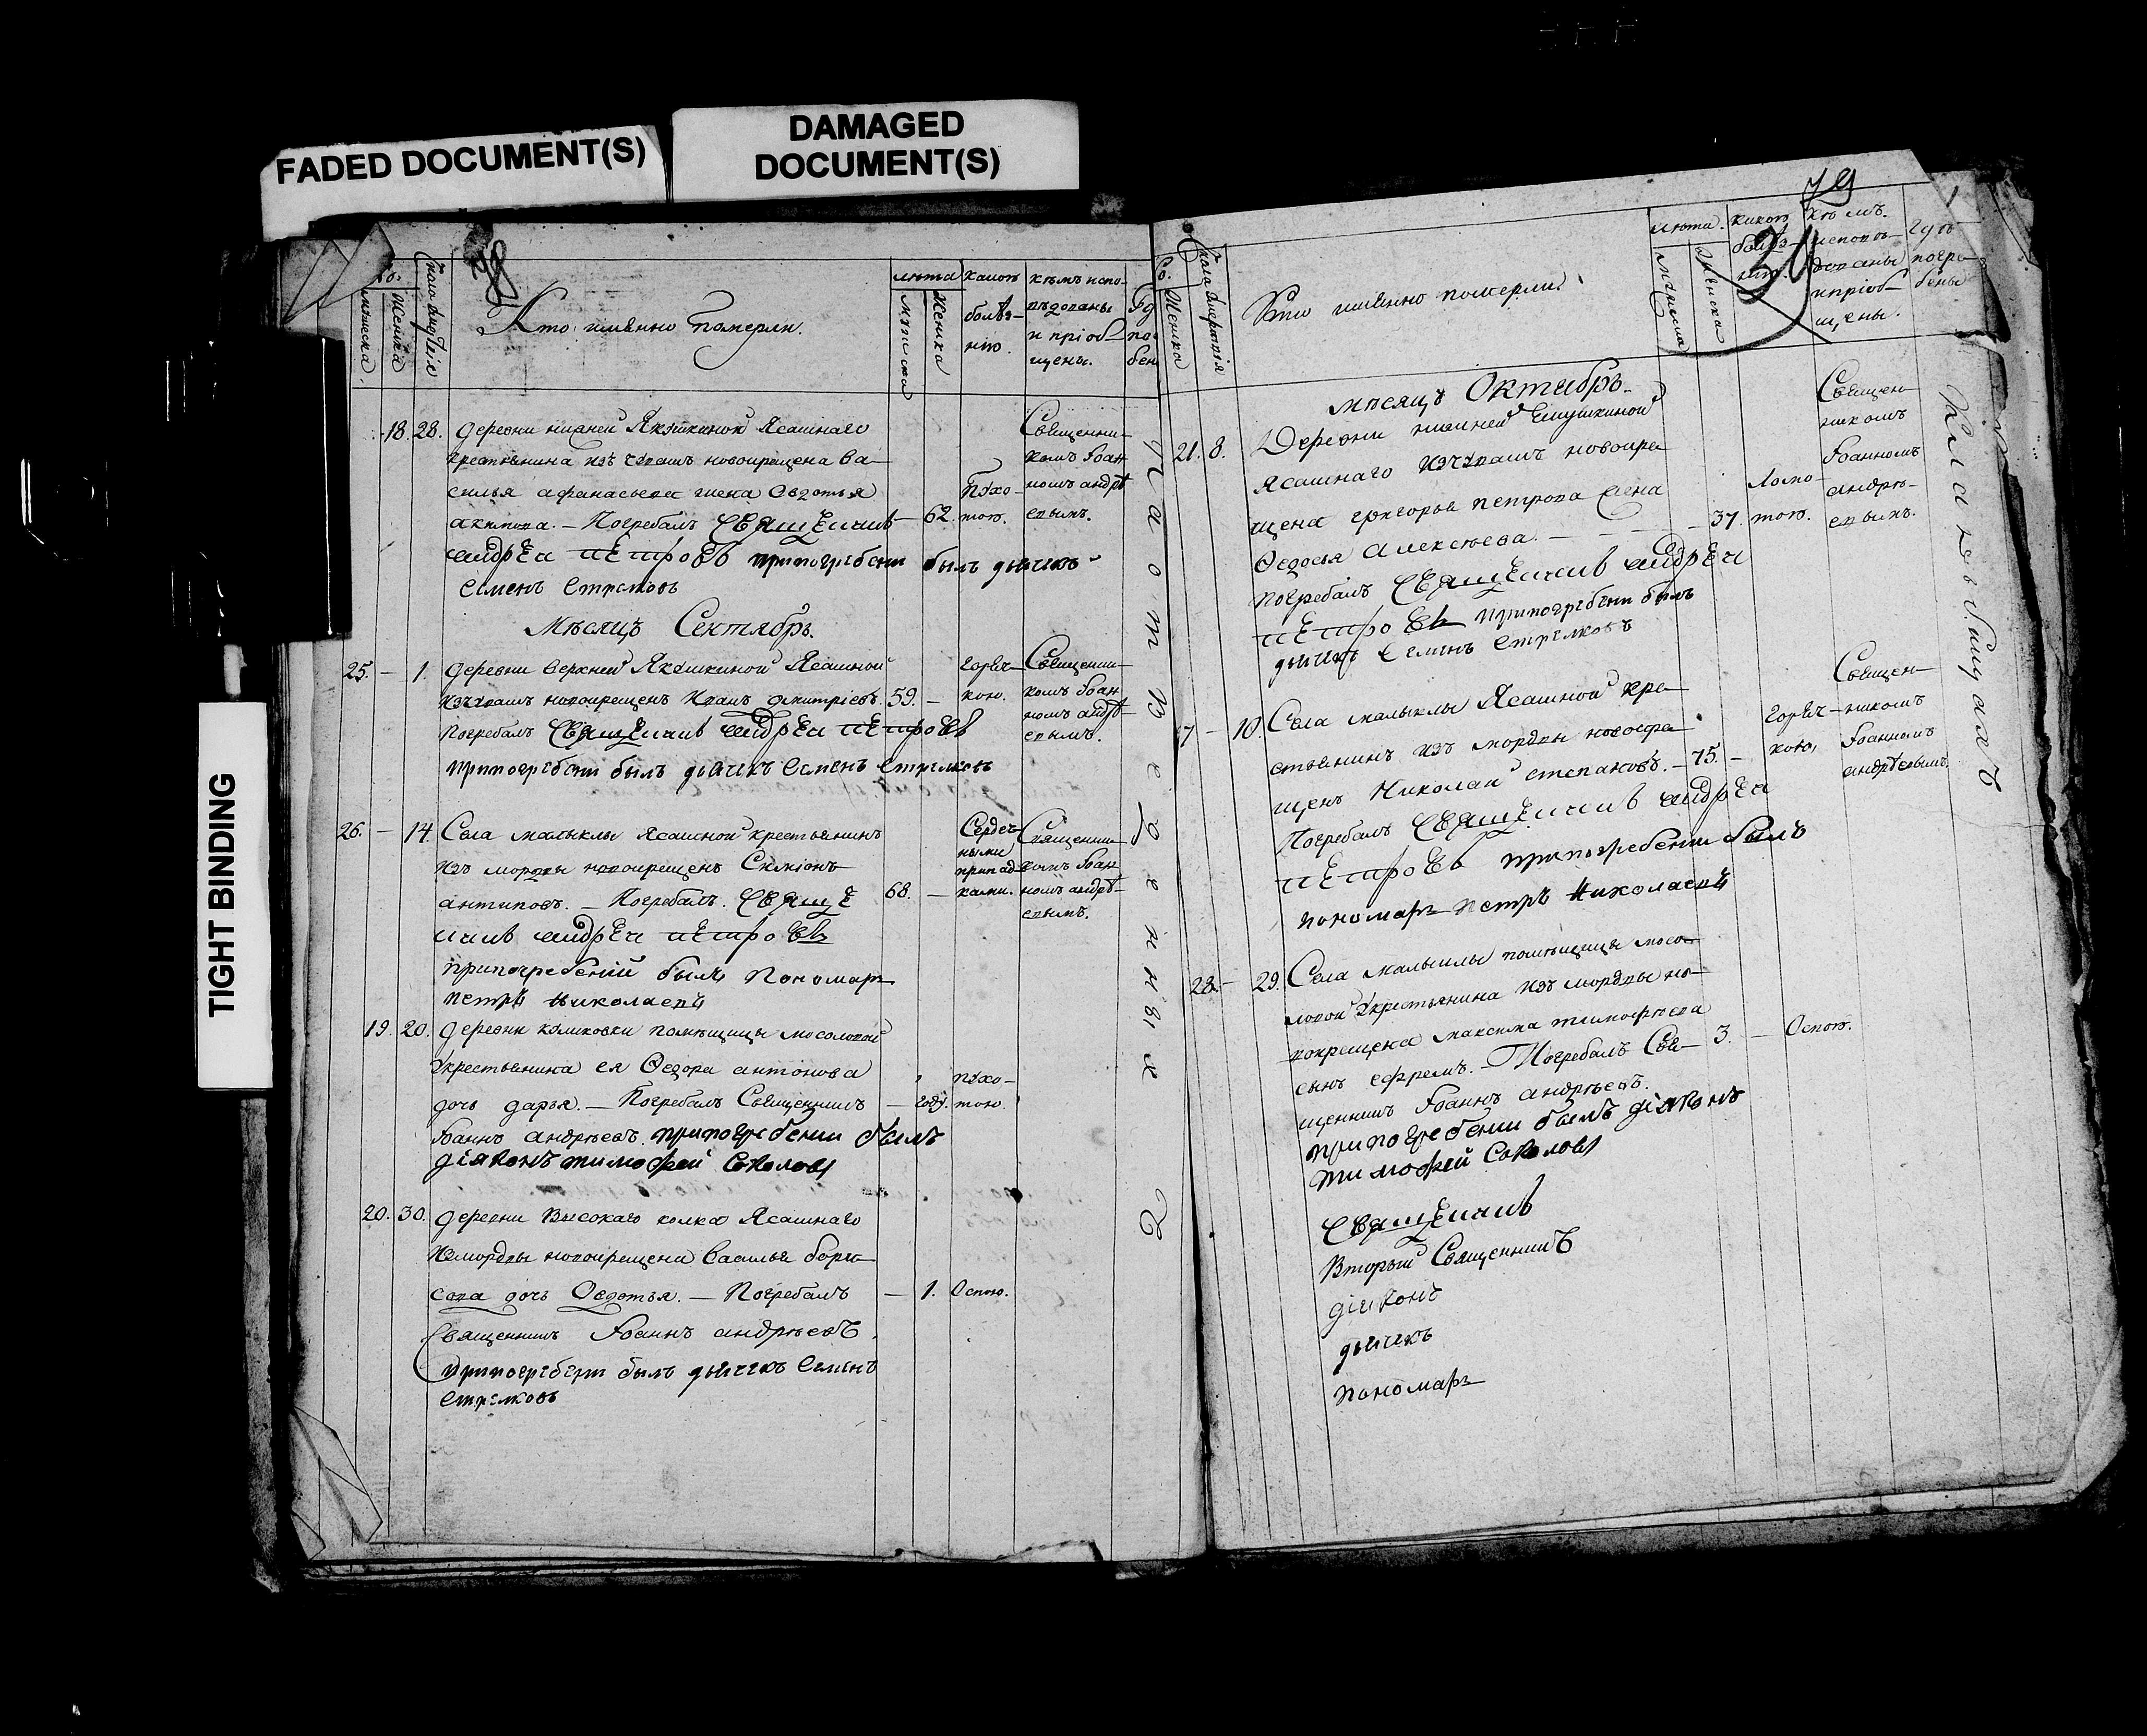 FADED DOCUMENT(S)
DAMAGED
DOCUMENT(S)
TIGHT BINDING
Кто имянно померли.
мужеска
женска
лѣта
мужска
женска
какою
болѣз-
нію.
кѣмъ испо-
вѣдованы
и пріоб-
щены.
18. 28. деревни нижней Якушкиной Ясашнаго
крестьянина изъ чувашъ новокрещена Ва-
силья афанасьева жена Овдотья
акимова. — Погребалъ СВЯЩЕнникъ — 62.
андрЕи пЕтроВъ припогребени былъ дьячекъ
Семенъ Стрелковъ
чахо-
тою.
Священни-
комъ Іоан
номъ андрѣ
евымъ.
Мѣсяцъ Сентябрь.
25. — 1. деревни верхней Якушкиной Ясашной
изъ чувашъ новокрещенъ Иванъ димитріевъ. 59. —
Погребалъ СВЯЩЕнникъ андрЕи пЕтроВъ
припогребени былъ дьячекъ Семенъ Стрелковъ
горяч-
кою.
Священни-
комъ Іоан
номъ андрѣ-
евымъ.
26. — 14. Села малыклы ясашной крестьянинъ
изъ мордвы новокрещенъ Симіонъ
антиповъ. — Погребалъ. СВЯЩЕ 68. —
нникъ андрЕи пЕтроВъ
припогребеній былъ Пономарь
петръ николаевъ
Сердеч-
ными
припад-
ками.
Священни-
комъ Іоан
номъ андрѣ-
евымъ.
19. 20. деревни куликовки помѣщицы мосоловой
крестьянина ея Ѳедора антонова
дочь дарья. — Погребалъ Священникъ —
Іоаннъ андрѣевъ. припогребении былъ
діяконъ тимофей Соколовъ
чахо-
тою.
20. 30. деревни Высокаго колка Ясашнаго
изъ мордвы новокрещена Василья бори-
сова дочь Овдотья. — Погребалъ — 1. Оспою.
Священникъ Іоаннъ андрѣевъ.
припогребени былъ дьячекъ Семенъ
Стрелковъ
79
Кто имянно померли.
женска
лѣта.
женска
какою
болѣз-
кѣмъ.
исповѣ-
дованы
и пріоб-
щены.
гдѣ
погре-
бены
мѣсяцъ Октябрь.
21. 8. Деревни нижней Якушкиной
ясашнаго изъ чувашъ новокре
щена григорья петрова жена
Ѳедосья Алексѣева. — — — 37.
погребалъ СВЯЩЕнникъ андрЕи
пЕтроВъ припогребени былъ
дьячекъ Семенъ Стрелковъ
ломо-
тою.
Священ-
никомъ
Іоанномъ
андрѣ-
евымъ.
7 — 10. Села малыклы Ясашной кре-
стьянинъ изъ мордвы новокре-
щенъ Николай степановъ. — 75. —
Погребалъ СВЯЩЕнникъ андрЕи
пЕтроВъ припогребении былъ
пономарь петръ николаевъ
горяч-
кою,
Священ-
никомъ
Іоанномъ
андрѣевымъ.
28. — 29. Села малыклы помѣщицы мосо-
ловой крестьянина изъ мордвы но-
вокрещена максима тимофѣева
сынъ ефремъ. — Погребалъ Свя- 3. — Оспою.
щенникъ Іоаннъ андрѣевъ.
припогребении былъ діяконъ
тимофей Соколовъ
СВЯЩЕнникъ
Вторый Священникъ
діяконъ
дьячекъ
пономарь
на отведенных
кладбищахъ